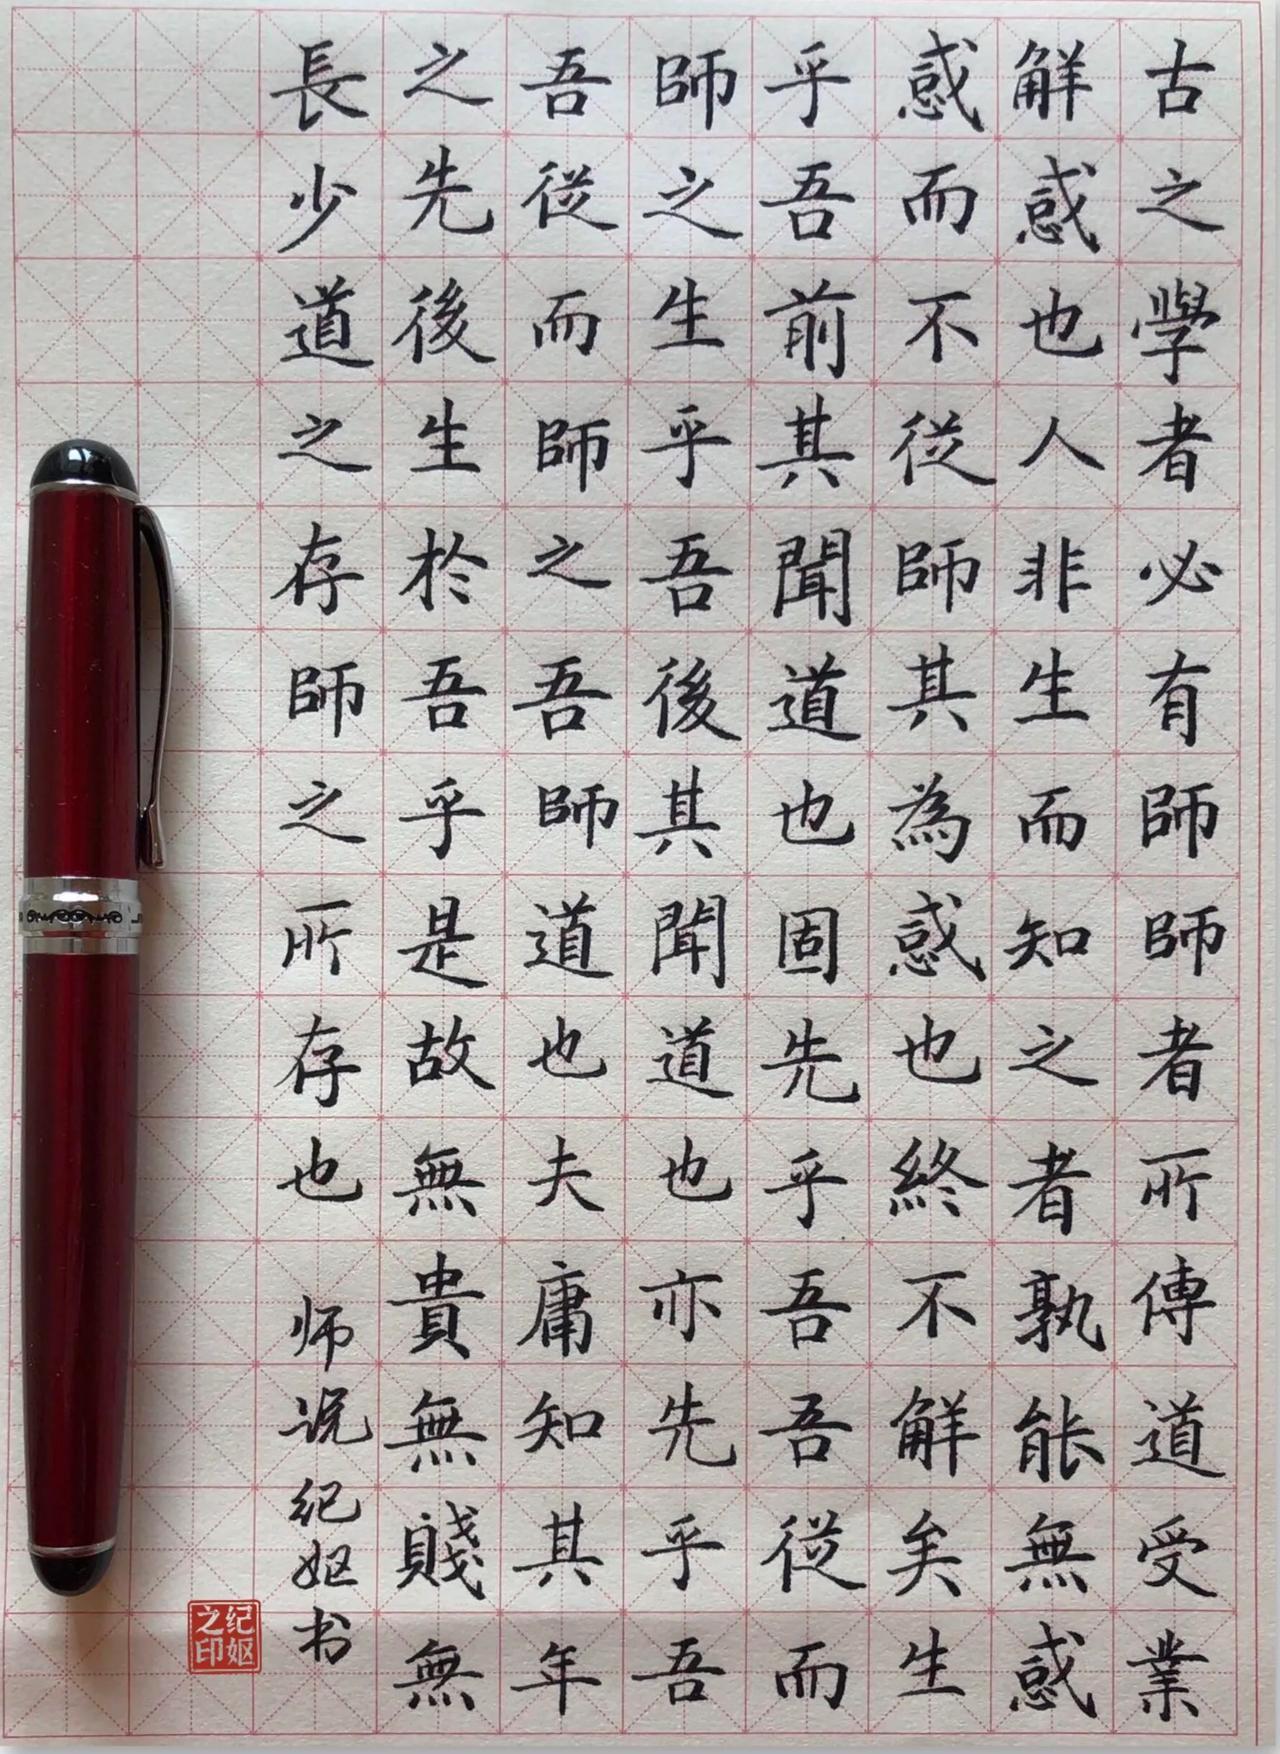 古之學者必有師師者所傳道受業
解惑也人非生而知之者孰能無惑
惑而不從師其為惑也終不解矣生
乎吾前其聞道也固先乎吾吾從而
師之生乎吾後其聞道也亦先乎吾
吾從而師之吾師道也夫庸知其年
之先後生於吾乎是故無貴無賤無
長少道之存師之所存也 师说 纪妪书
纪妪
之印